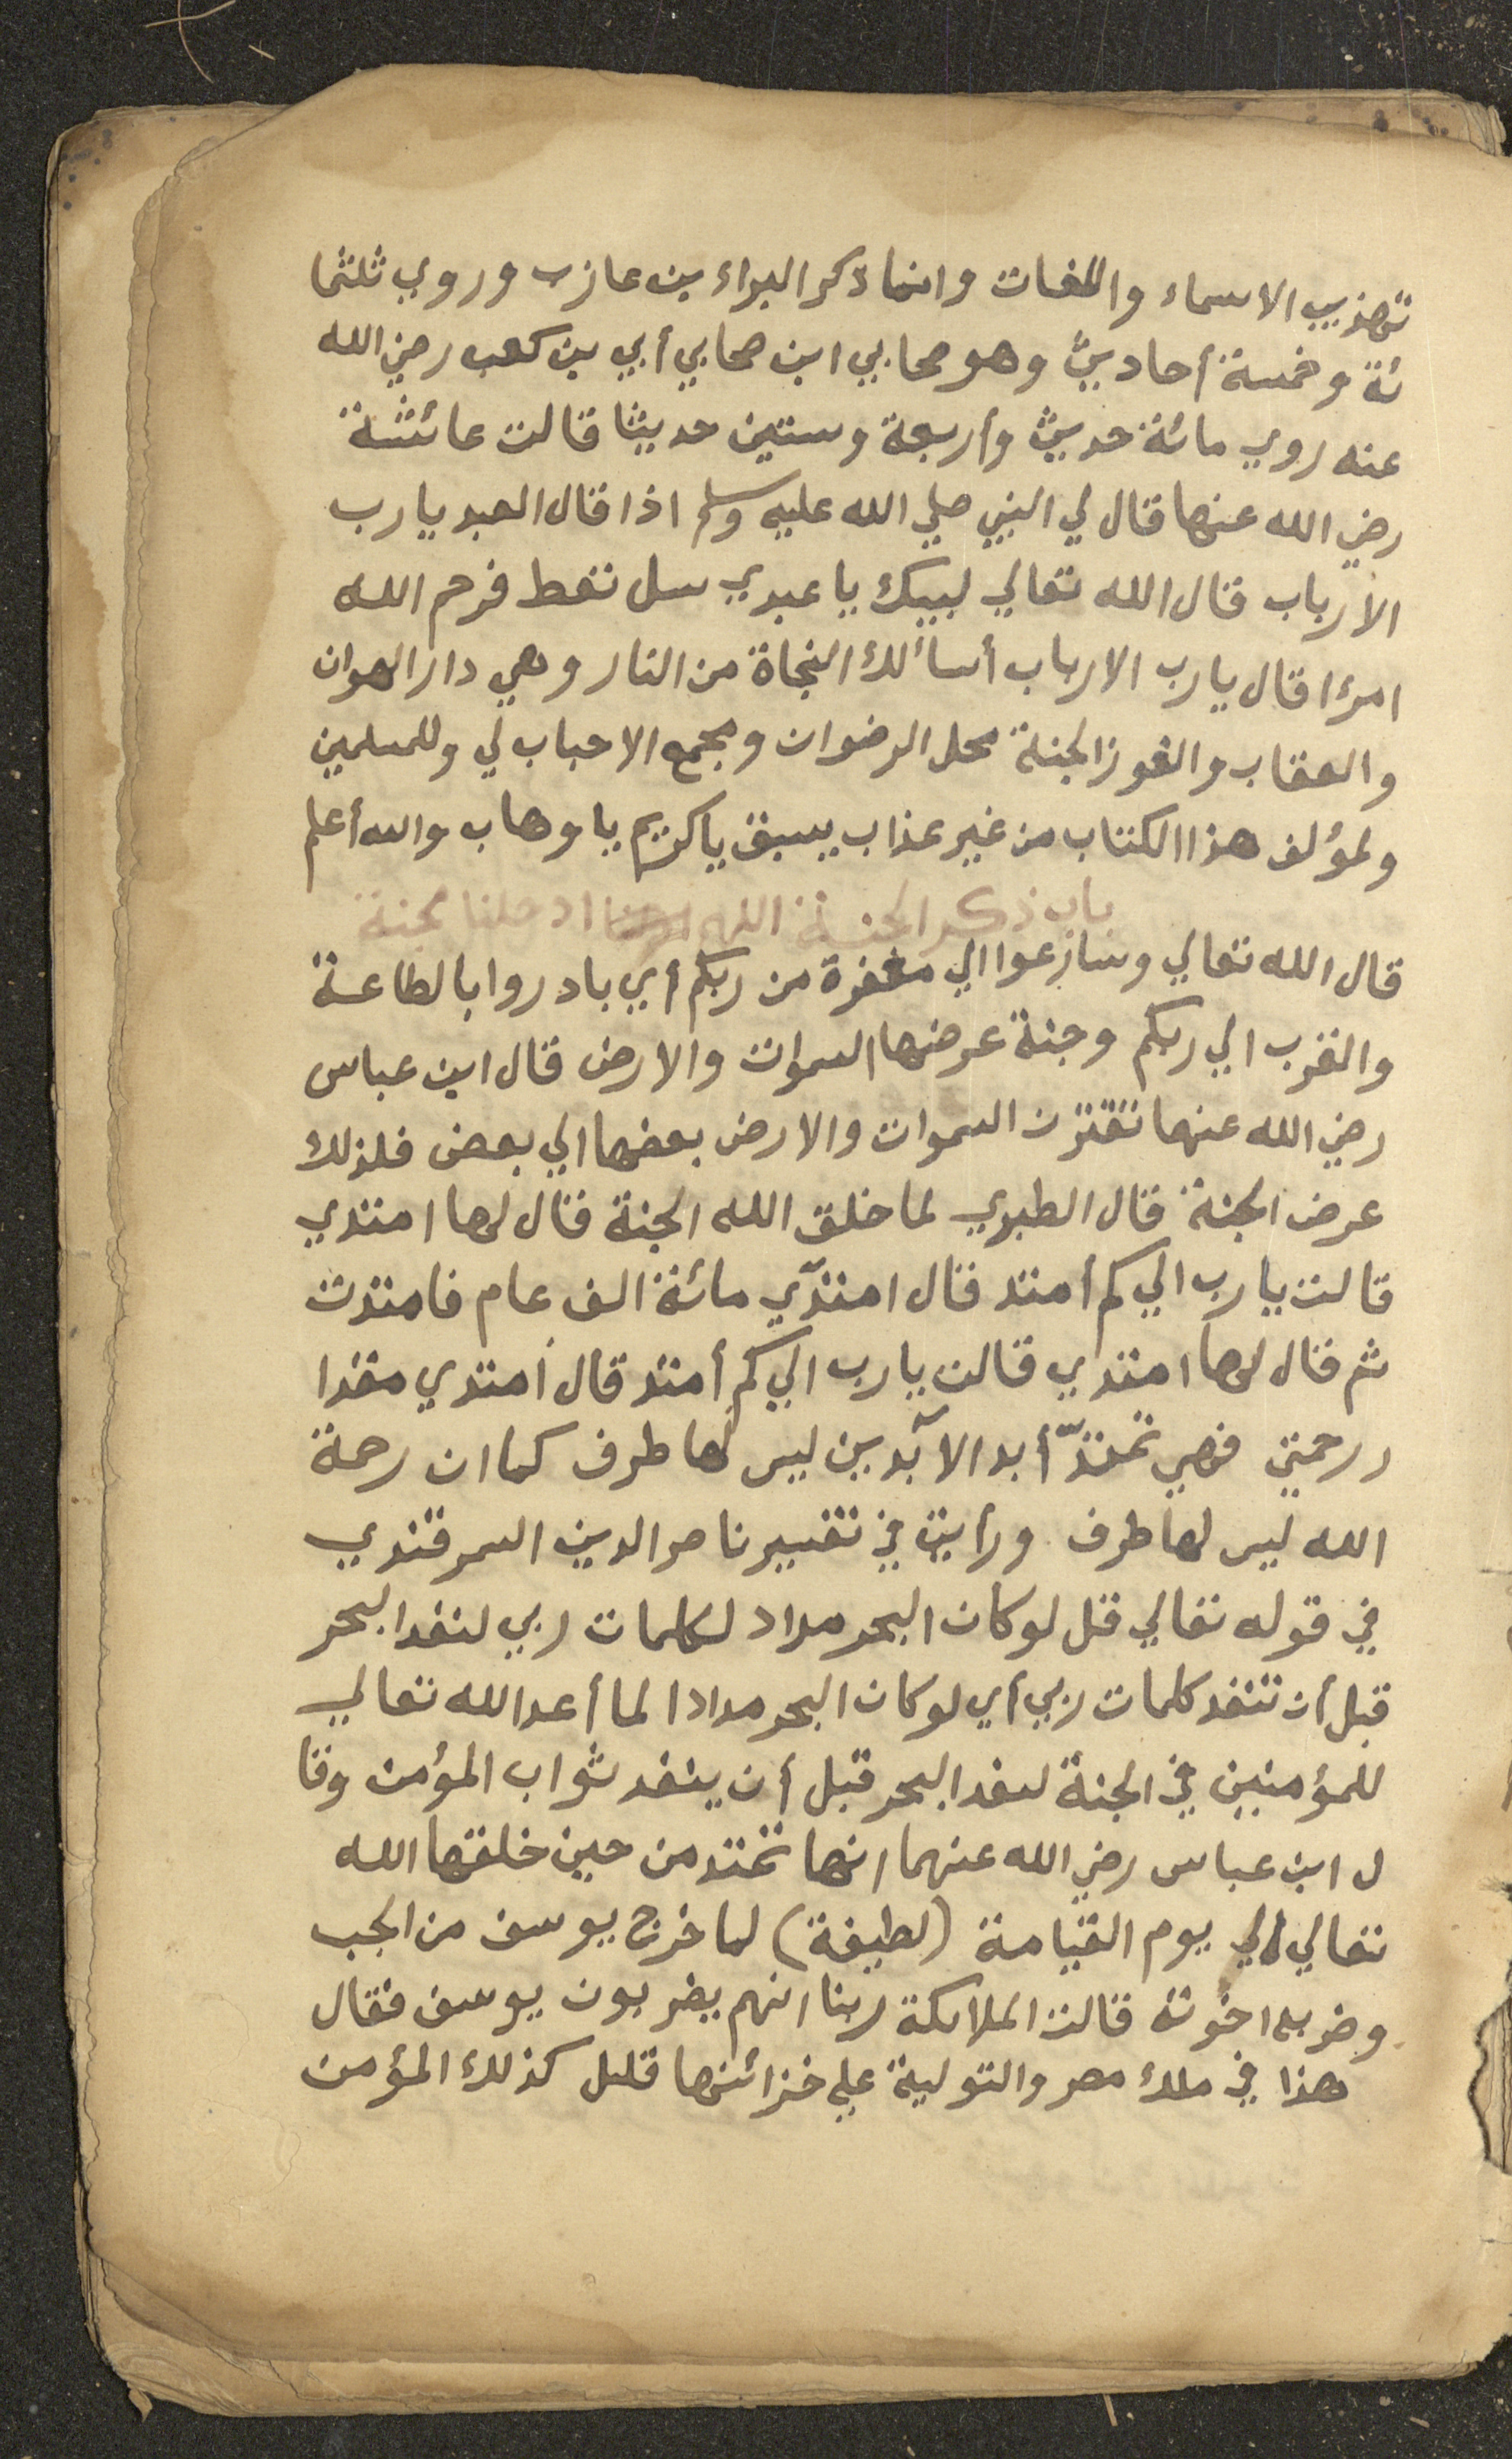 تهذيب الاسماء واللغات وانما ذكر البراء بن عازب وروي ثلثما
ئة وخمسة أحاديث وهو صحابي ابن صحابي أبي بن كعب رضي الله
عنه روي مائة حديث وأربعة وستين حديثا قالت عائشة
رضي الله عنها قال لي النبي صلي الله عليه وسلم اذا قال العبد يا رب
الأرباب قال الله تعالي لبيك يا عبدي سل تعط فرحم الله
امرءا قال يا رب الارباب أسألك النجاة من النار وهي دار الهوان
والعقاب والفوز الجنة محل الرضوان ومجمع الاحباب لي وللمسلمين
ولمؤلف هذا الكتاب من غير عذاب يسبق يا كريم يا وهاب والله أعلم
باب ذكر الجنة اللهم ادخلنا الجنة
قال الله تعالي وسارعوا الي مغفرة من ربكم أي بادروا بالطاعة
والقرب الي ربكم وجنة عرضها السموات والارض قال ابن عباس
رضي الله عنهما تقترن السموات والارض بعضها الي بعض فلذلك
عرض الجنة قال الطبري لما خلق الله الجنة قال لها امتدي
قالت يا رب الي كم أمتد قال امتدّي مائة الف عام فامتدت
ثم قال لها امتدي قالت يا رب الي كم أمتد قال امتدي مقدا
ر رحمتي فهي تمتدّ أبد الآبدين ليس لها طرف كما ان رحمة
الله ليس لها طرف ورأيت في تفسير ناصر الدين السمرقندي
في قوله تعالي قل لو كان البحر مداد لكلمات ربي لنفد البحر
قبل أن تنفد كلمات ربي أي لو كان البحر مدادا لما أعد الله تعالي
للمؤمنين في الجنة لنفد البحر قبل أن ينفد ثواب المؤمن وقا
ل ابن عباس رضي الله عنهما انها تمتد من حين خلقها الله
تعالي الي يوم القيامة (لطيفة) لما خرج يوسف من الجب
وضربه اخوته قالت الملائكة ربنا انهم يضربون يوسف فقال
هذا في ملك مصر والتولية علي خزائنها قليل كذلك المؤمن